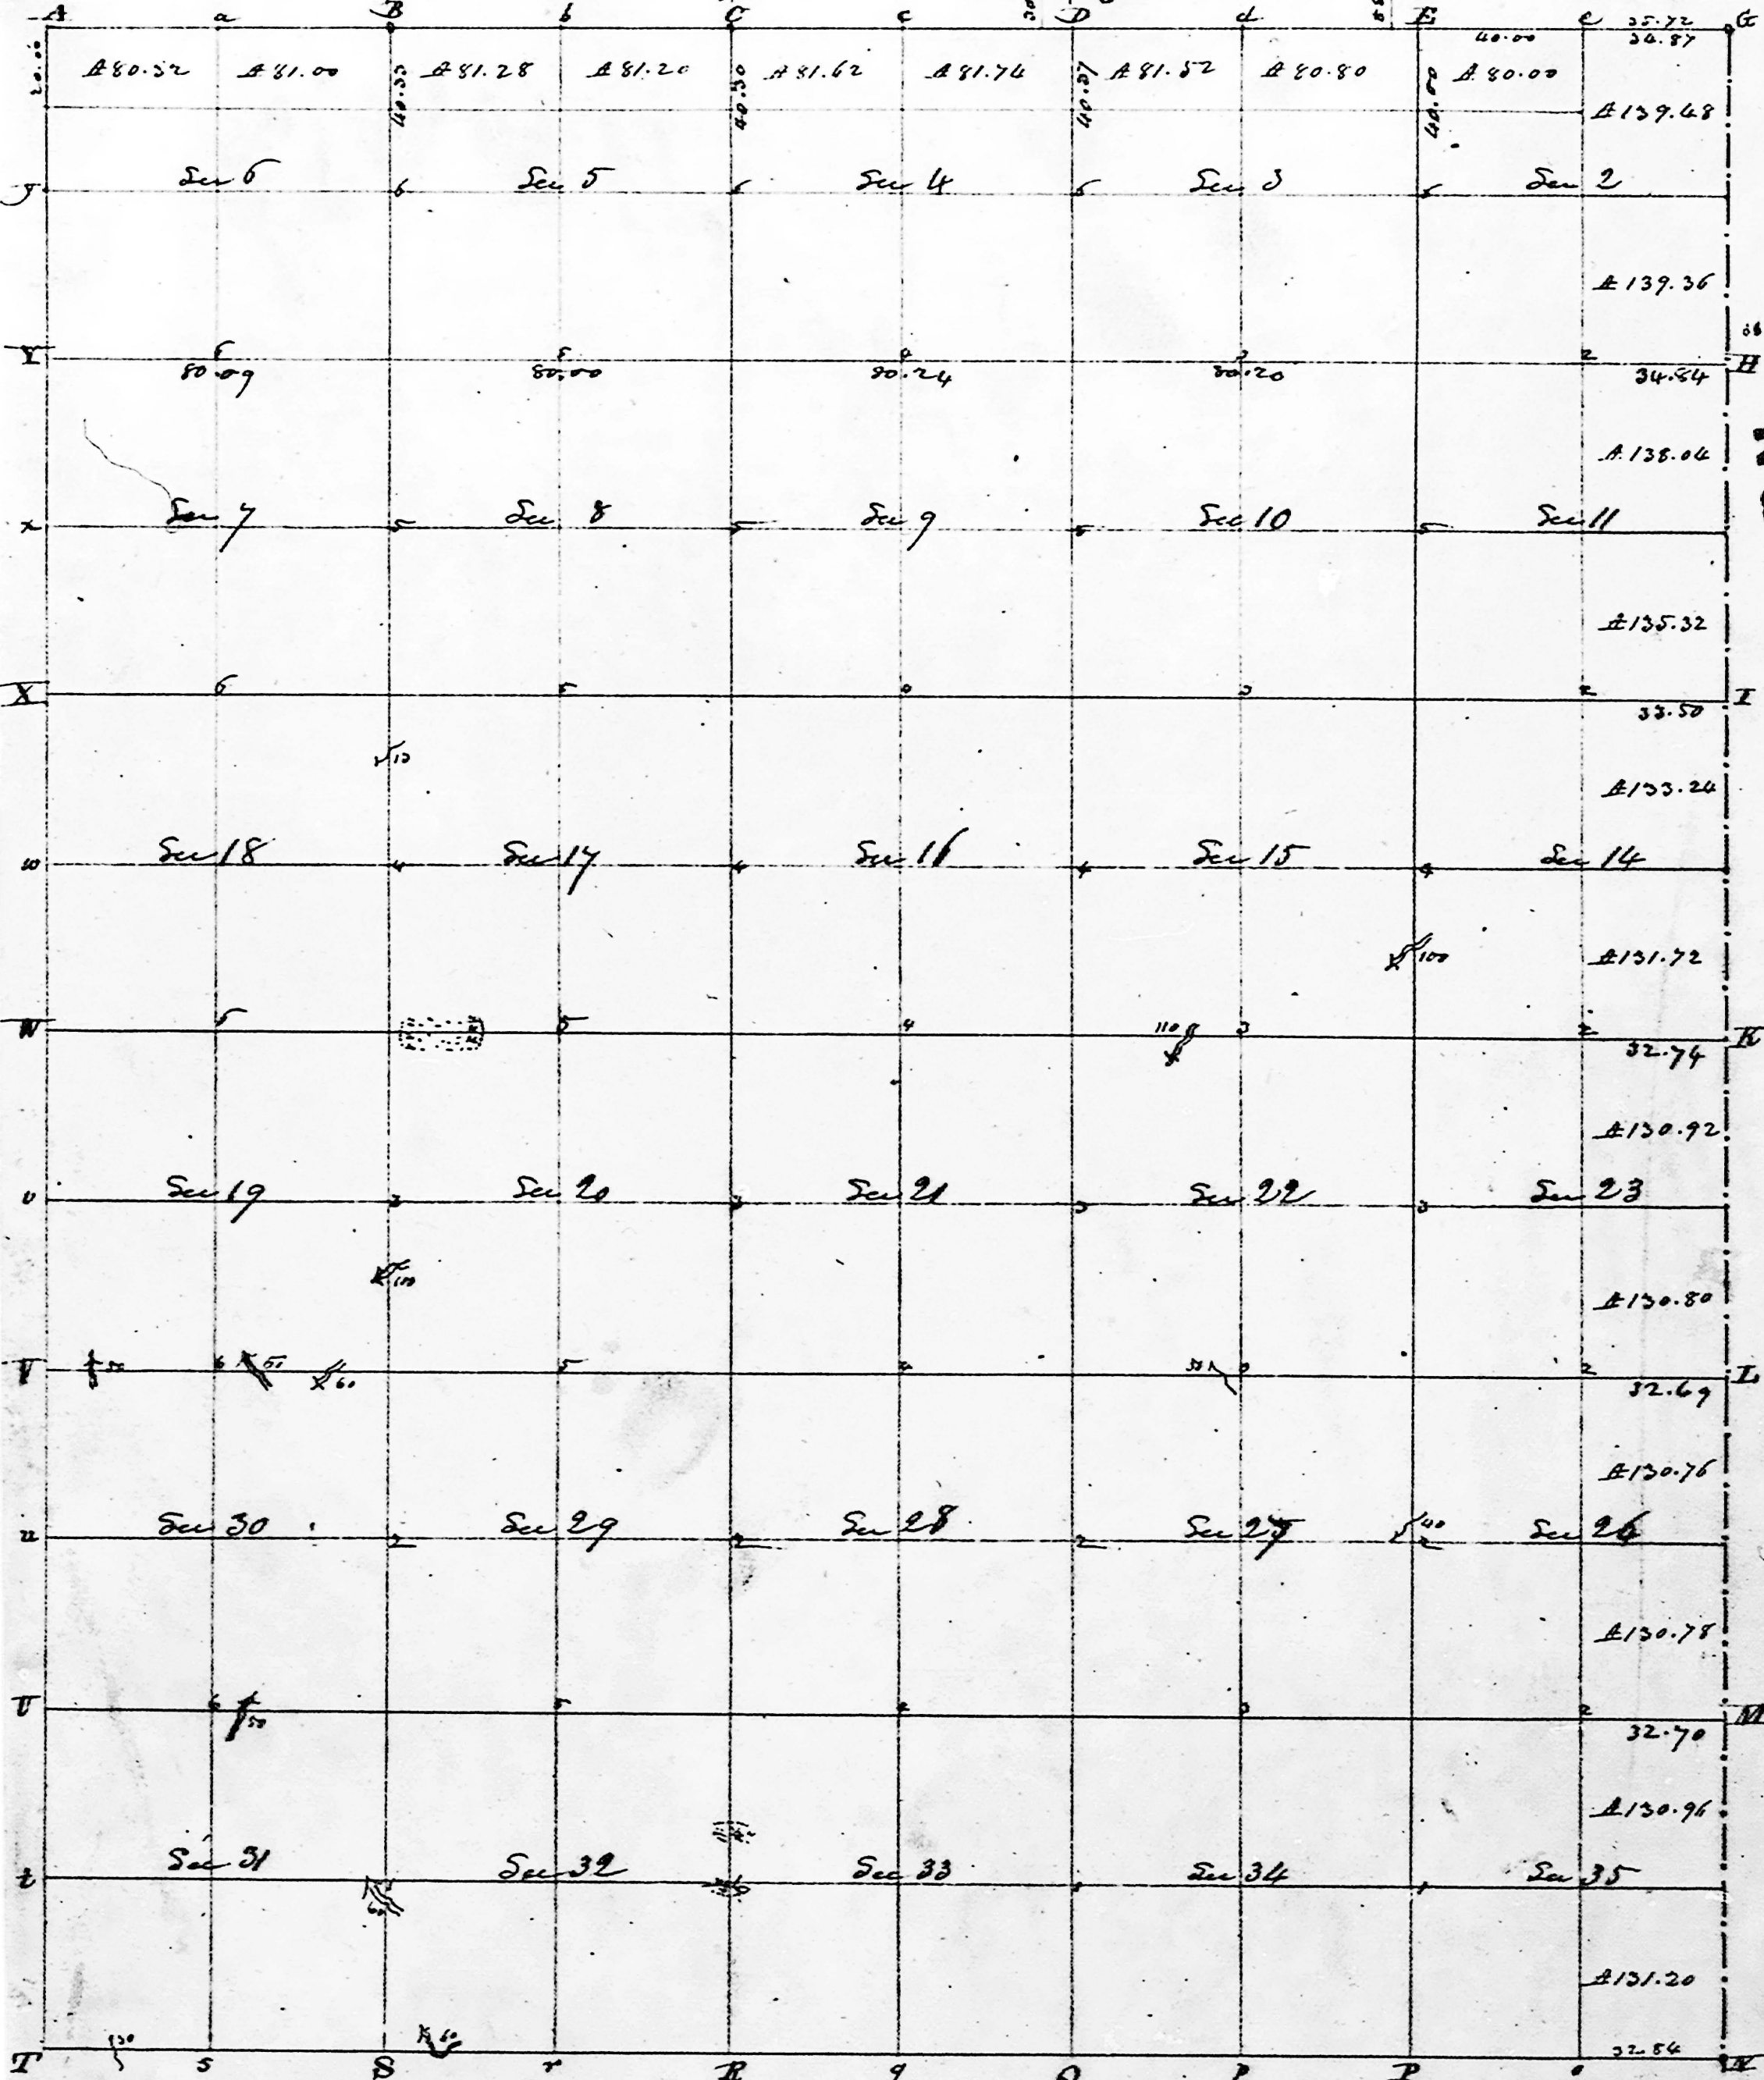 A a B b C c D d E e 35.72 G
40.00 34.87
20.00 A 80.52 A 81.00 A 81.28 A 81.20 A 81.62 A 81.74 A 81.52 A 80.80 A 80.00
40.50 40.00
A 139.48
Sec 6 Sec 5 Sec 4 Sec 3 Sec 2
6 6
A 139.36
Y 6 5 2 H
80.09 80.00 80.24 80.20 34.84
A 138.04
Sec 7 Sec 8 Sec 9 Sec 10 Sec 11
x 5 5 5 5
A 135.32
X 6 5 2 I
33.50
A 133.24
Sec 18 Sec 17 Sec 16 Sec 15 Sec 14
w 4 4 4 4
100 A 131.72
W 5 5 4 110 3 2 K
32.74
A 130.92
Sec 19 Sec 20 Sec 21 Sec 22 Sec 23
v 3 3 3 3
100 A 130.80
V 6 60 5 4 2 L
32.69
A 130.76
Sec 30 Sec 29 Sec 28 Sec 27 40 Sec 26
u 2 2 2 2
A 130.78
U 6 50 5 4 3 2 M
32.70
A 130.96
Sec 31 Sec 32 Sec 33 Sec 34 Sec 35
t
60
A 131.20
60 32.84
T s S r R q Q p P o N